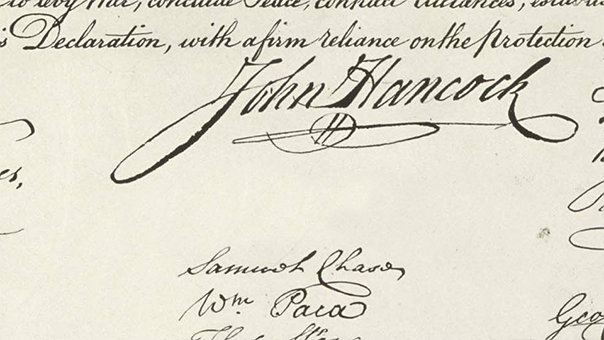 to levy War, conclude Peace, contract Alliances,
Declaration, with a firm reliance on the protection
John Hancock
Samuel Chase
Wm Paca